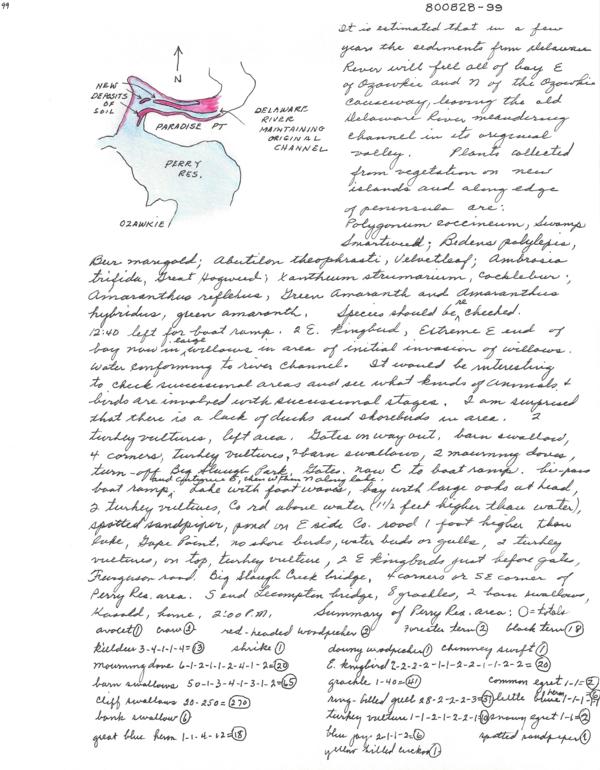 99
800828-99
N
NEW
DEPOSITS
OF
SOIL
PARADISE PT
DELAWARE
RIVER
MAINTAINING
ORIGINAL
CHANNEL
PERRY
RES.
OZAWKIE
It is estimated that in a few
years the sediments from Delaware
River will fill all of bay E
of Ozawkie and N of the Ozawkie
causeway, leaving the old
Delaware River meandering
channel in its original
valley. Plants collected
from vegetation on new
islands and along edge
of peninsula are:
Polygonum coccineum, Swamp
Smartweed; Bedens polylepis,
Bur marigold; Abutilon theophrasti, Velvetleaf; Ambrosia
trifida, Great Hogweed; Xantheum strumarium, Cocklebur;
Amaranthus reflexus, Green Amaranth and Amaranthus
hybridus, green amaranth. Species should be re checked.
12:40 left for boat ramp. 2 E. Kingbird, Extreme E end of
bay now in large willows in area of initial invasion of willows.
Water conforming to river channel. It would be interesting
to check successional areas and see what kinds of animals &
birds are involved with successional stages. I am surprised
that there is a lack of ducks and shorebirds in area. 2
turkey vultures, left area. Gates on way out. barn swallow,
4 corners, turkey vultures, 7 barn swallows, 2 mourning doves,
turn-off Big Slough Park, Gates. now E to boat ramp. bi-pass
boat ramp, and continue E, then within N along lake. Lake with foot waves, bay with large oaks at head,
2 turkey vultures, Co rd above water (1 1/2 feet higher than water),
spotted sandpiper, pond on E side Co. road 1 foot higher than
lake, Gape Point. no shore birds, water birds or gulls, 2 turkey
vultures, on top, turkey vulture, 2 E kingbirds just before gates,
Furguson road. Big Slough Creek bridge, 4 corners or SE corner of
Perry Res. area. S end Lecompton bridge, 8 grackles, 2 barn swallows,
Kasold, home, 2:00 P.M. Summary of Perry Res. area: O=totals
avocet 1 crow 3 red-headed woodpecker 2 Forester tern 2 black tern 18
killdeer 3-4-1-1-4=13 shrike 1 downy woodpecker 1 chimney swift 1
mourning dove 6-1-2-1-1-2-4-1-1-2=20 E. kingbird 2-2-2-2-1-1-2-2-1-1-2-2=20
barn swallows 50-1-3-4-1-3-1-2=65 grackle 1-40=41 common egret 1-1=2
cliff swallows 20-250=270 ring-billed gull 28-2-2-2-3=37 little blue heron
bank swallow 6 turkey vulture 1-1-2-1-2-2-1= snowy egret 1-1=2
great blue heron 1-1-4-12=18 blue jay 2-1-1-2=6 spotted sandpiper 1
yellow billed cuckoo 1